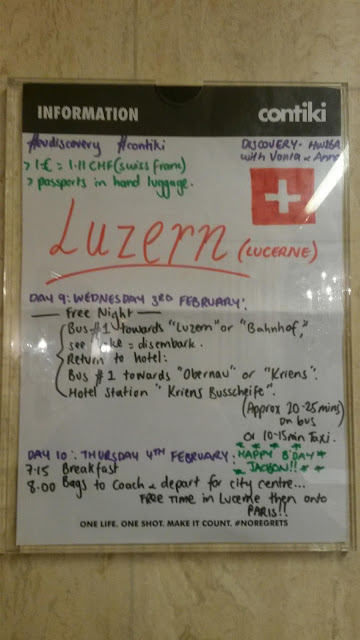 INFORMATION contiki
#eudiscovery #contiki
DISCOVERY - HW26A
with Vonia & Anna
> 1€ = 1.11 CHF (swiss franc)
> passports in hand luggage.
Luzern (LUCERNE)
DAY 9: WEDNESDAY 3RD FEBRUARY:
— Free Night —
Bus #1 towards "Luzern" or "Bahnhof,"
see lake = disembark.
Return to hotel:
Bus #1 towards "Obernau" or "Kriens".
Hotel station "Kriens Busscheife".
(Approx 20-25mins)
on bus
or 10-15min Taxi.
DAY 10: THURSDAY 4TH FEBRUARY: HAPPY B'DAY
JACSON!!
7:15 Breakfast
8:00 Bags to Coach & depart for city centre...
FREE TIME in Lucerne then onto
PARIS!!
ONE LIFE. ONE SHOT. MAKE IT COUNT. #NOREGRETS